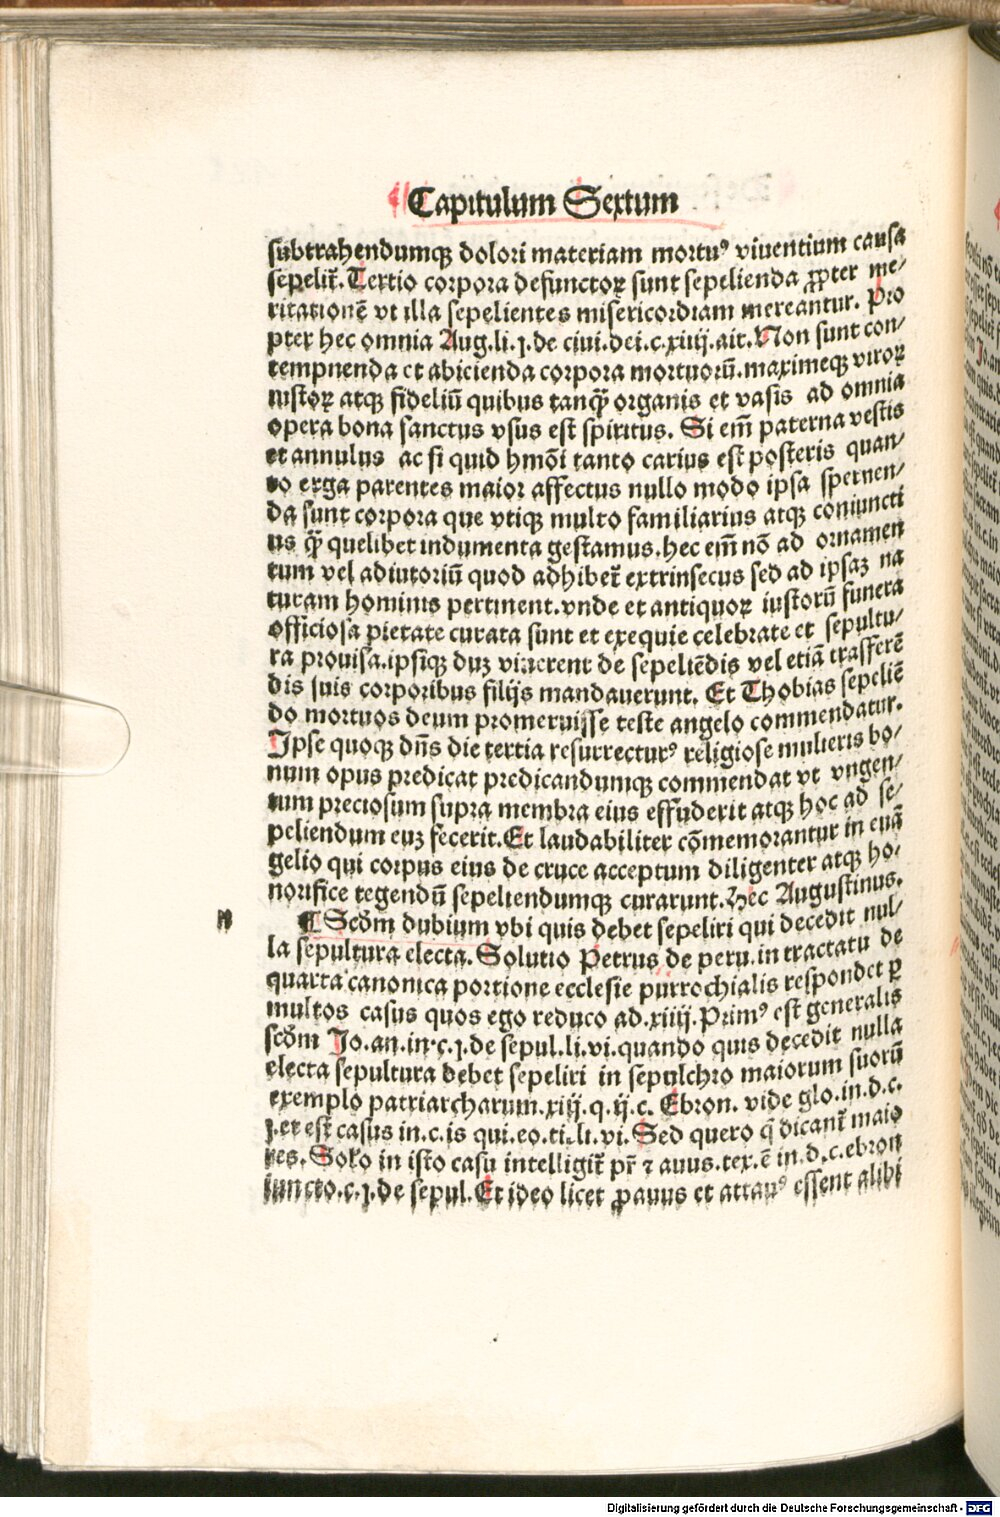 Capitulum Sextum
subtrahendumqꝫ dolori materiam mortuꝰ viuentium causa
sepelit̃. Tertio corpora defunctoꝝ sunt sepelienda ꝓpter me/
ritationẽ vt illa sepelientes misericordiam mereantur. Pro
pter hec omnia Aug.li.j.de ciui.dei.c.xiiij.ait. Non sunt con/
tempnenda et abicienda corpora mortuorũ.maximeqꝫ viroꝝ
iustoꝝ atqꝫ fideliũ quibus tanꝙ̃ organis et vasis ad omnia
opera bona sanctus vsus est spiritus. Si em̃ paterna vestis
et annulus ac si quid hmõi tanto carius est posteris quan/
to erga parentes maior affectus nullo modo ipsa spernen/
da sunt corpora que vtiqꝫ multo familiarius atqꝫ coniuncti
us ꝙ̃ quelibet indumenta gestamus.hec em̃ nõ ad ornamen
tum vel adiutoriũ quod adhibet̃ extrinsecus sed ad ipsaꝫ na
turam hominis pertinent.vnde et antiquoꝝ iustorũ funera
officiosa pietate curata sunt et exequie celebrate et sepultu/
ra prouisa.ipsiqꝫ duꝫ viuerent de sepeliẽdis vel etiã trãsferẽ
dis suis corporibus filijs mandauerunt. Et Thobias sepeliẽ
do mortuos deum promeruisse teste angelo commendatur.
Ipse quoqꝫ dñs die tertia resurrecturꝰ religiose mulieris bo/
num opus predicat predicandumqꝫ commendat vt vngen/
tum preciosum supra membra eius effuderit atqꝫ hoc ad se/
peliendum euꝫ fecerit. Et laudabiliter cõmemorantur in euã
gelio qui corpus eius de cruce acceptum diligenter atqꝫ ho/
norifice tegendũ sepeliendumqꝫ curarunt. Hec Augustinus.
¶ Scďm dubium vbi quis debet sepeliri qui decedit nul/
la sepultura electa. Solutio Petrus de peru.in tractatu de
quarta canonica portione ecclesie parrochialis respondet ꝑ
multos casus quos ego reduco ad.xiiij. Primꝰ est generalis
scďm Jo.an.in.c.j.de sepul.li.vi.quando quis decedit nulla
electa sepultura debet sepeliri in sepulchro maiorum suorũ
exemplo patriarcharum.xiij.q.ij.c. Ebron. vide glo.in.d.c.
j.et est casus in.c.is qui.eo.ti.li.vi. Sed quero q̃ dicant̃ maio
res. Solo in isto casu intelligit̃ pr̃ ⁊ auus.tex.ẽ in.d.c.ebron
iuncto.c.j.de sepul. Et ideo licet ꝓauus et attauꝰ essent alibi
Digitalisierung gefördert durch die Deutsche Forschungsgemeinschaft - DFG